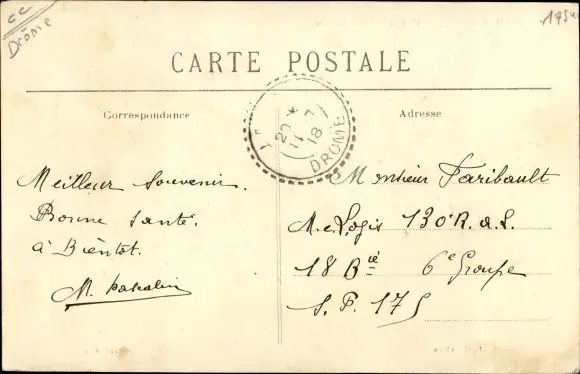 CC
Drôme
CARTE POSTALE
Correspondance
Adresse
20 * 7
11 18
DROME
Meilleur Souvenir.
Bonne Santé.
à Bientôt.
M. Pascalin
Monsieur Faribault
M. e Logis 130 R. a. L.
18 Bie 6e Groupe
S. P. 175